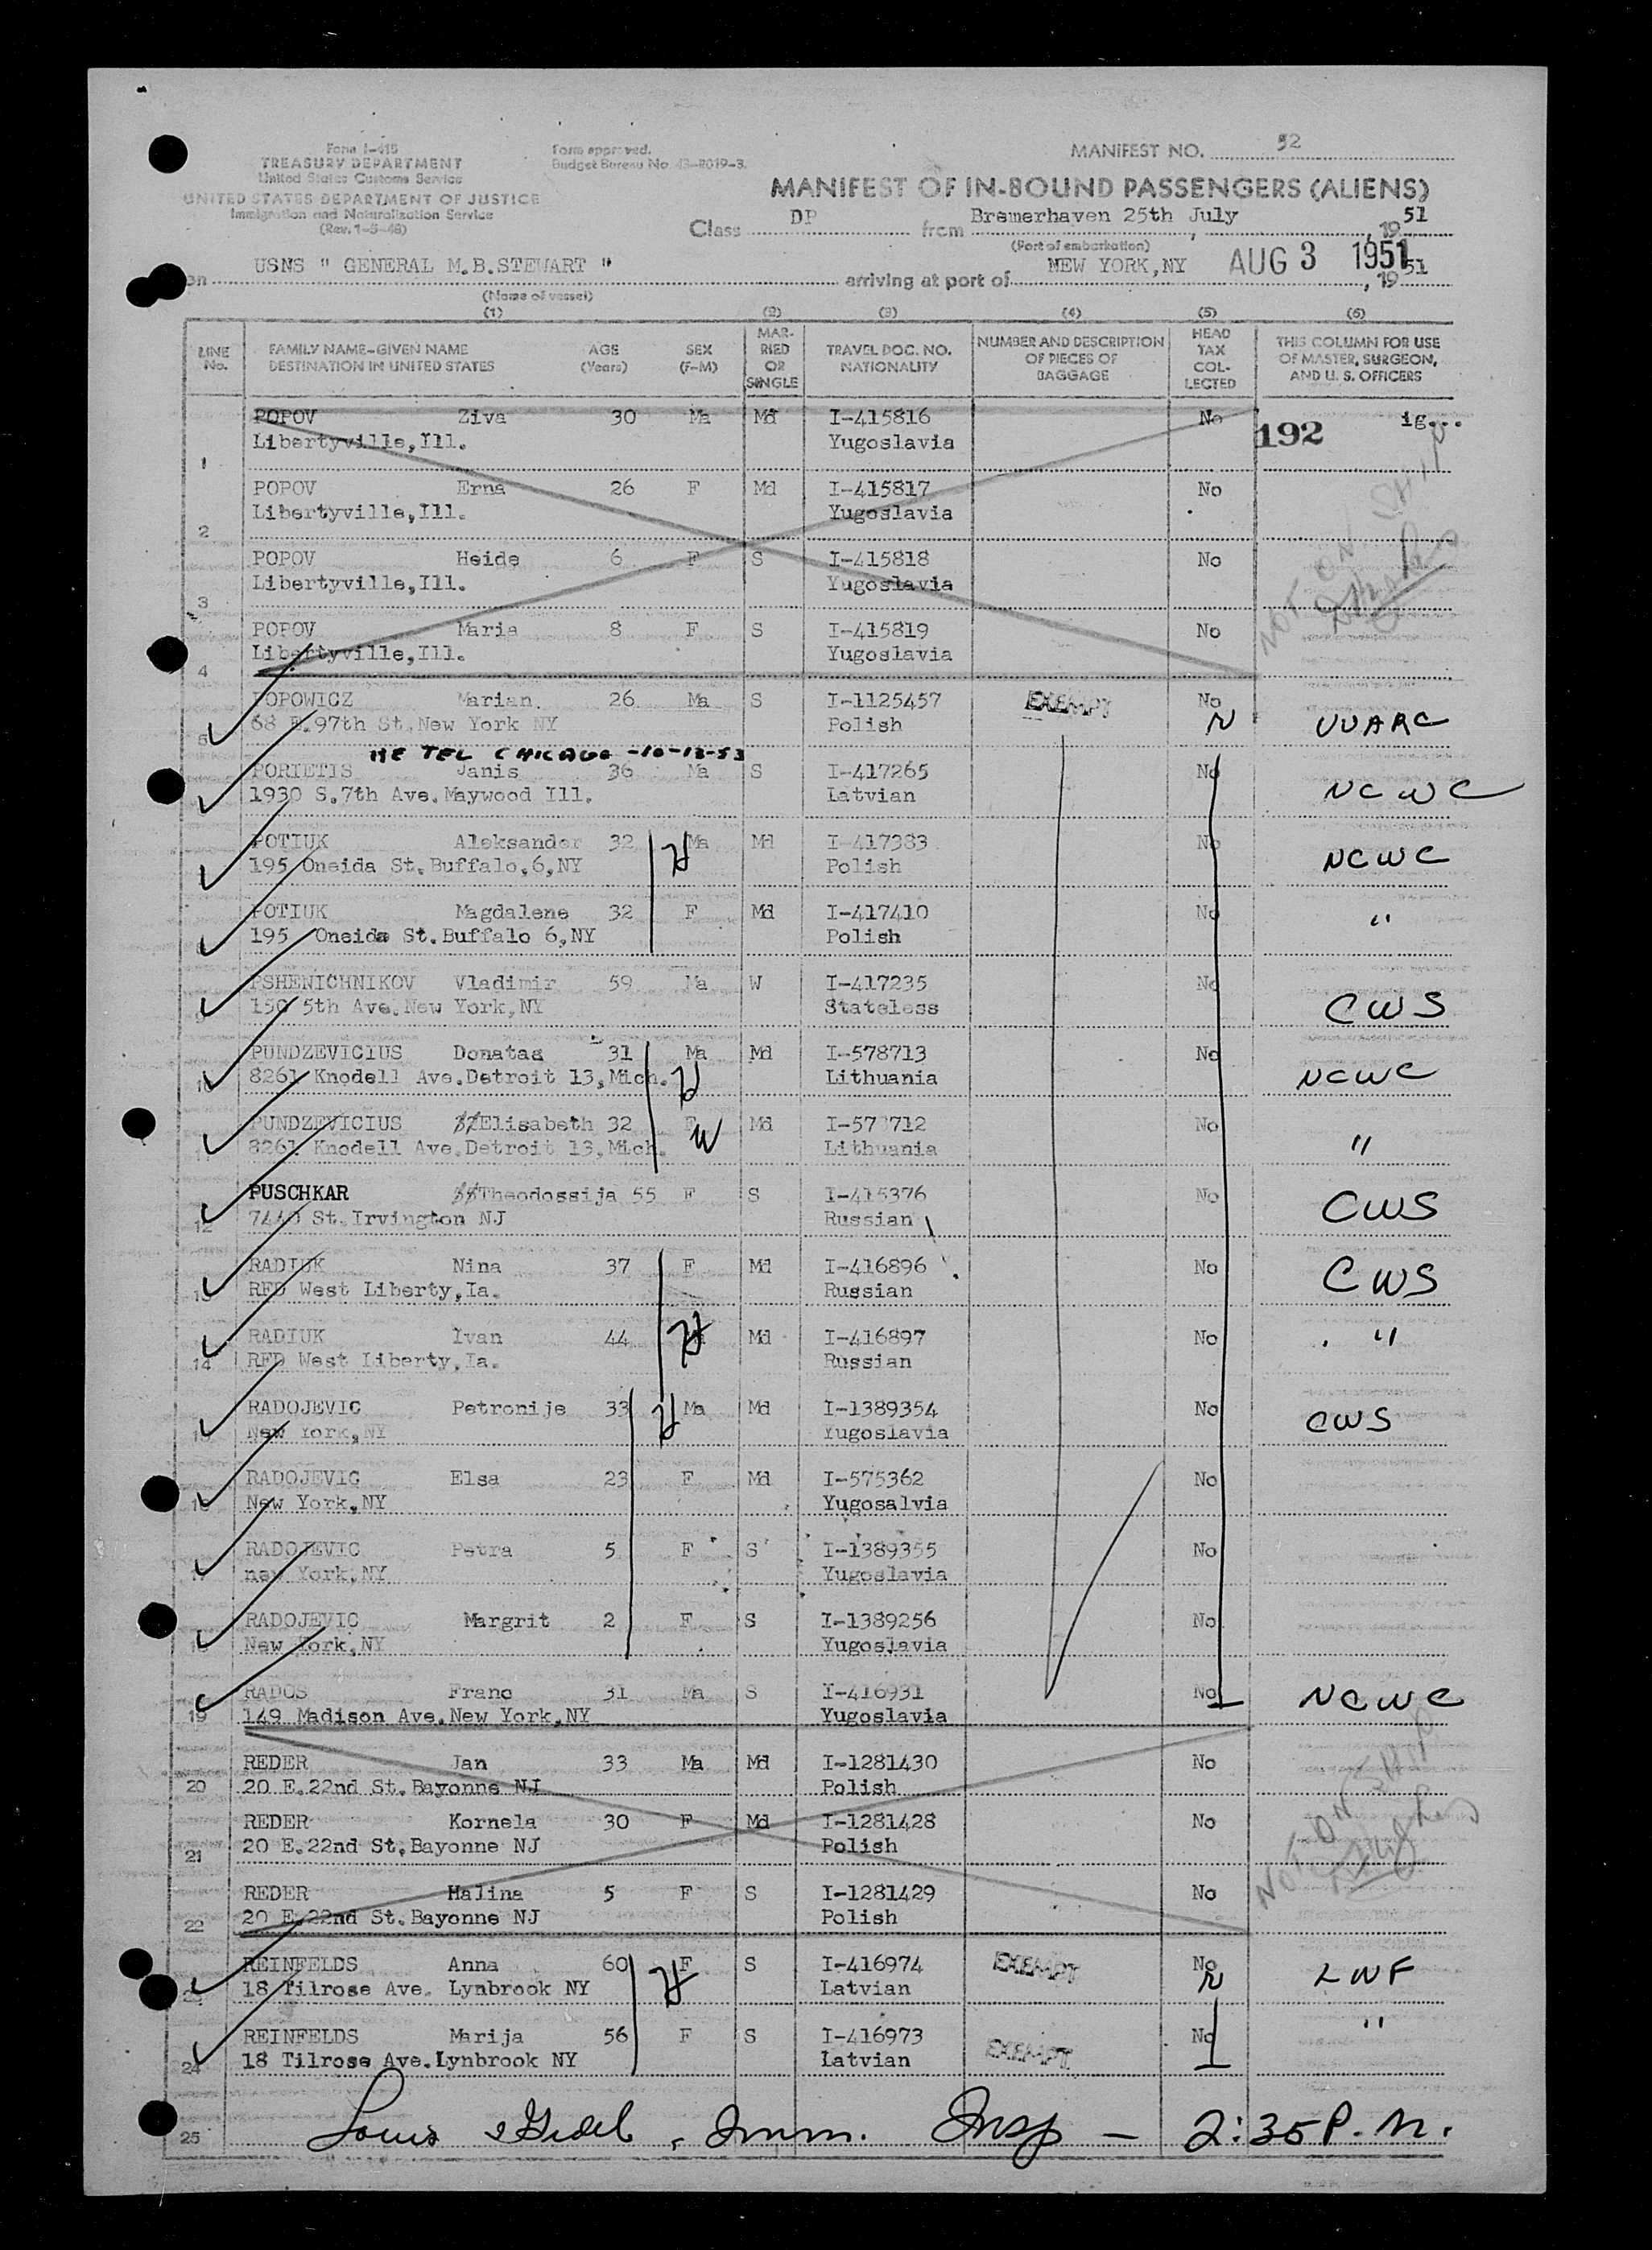 Form I-415
TREASURY DEPARTMENT
United States Customs Service
UNITED STATES DEPARTMENT OF JUSTICE
Immigration and Naturalization Service
(Rev. 1-5-48)
Form approved.
Budget Bureau No. 43-R019-3.
MANIFEST NO. 52
MANIFEST OF IN-BOUND PASSENGERS (ALIENS)
Class DP from Bremerhaven 25th July, 1951
(Port of embarkation)
on USNS " GENERAL M.B.STEWART " arriving at port of NEW YORK,NY AUG 3 1951, 1951
(Name of vessel)
(1) (2) (3) (4) (5) (6)
LINE No. FAMILY NAME-GIVEN NAME DESTINATION IN UNITED STATES AGE (Years) SEX (F-M) MARRIED OR SINGLE TRAVEL DOC. NO. NATIONALITY NUMBER AND DESCRIPTION OF PIECES OF BAGGAGE HEAD TAX COLLECTED THIS COLUMN FOR USE OF MASTER, SURGEON, AND U. S. OFFICERS
POPOV Ziva 30 Ma Md I-415816 No 192 ig...
1 Libertyville,Ill. Yugoslavia
POPOV Erna 26 F Md I-415817 No
2 Libertyville,Ill. Yugoslavia
POPOV Heide 6 F S I-415818 No NOT ON SHIP
3 Libertyville,Ill. Yugoslavia
POPOV Maria 8 F S I-415819 No
4 Libertyville,Ill. Yugoslavia
POPOWICZ Marian. 26 Ma S I-1125457 EXEMPT No
5 68 E.97th St.New York NY Polish N UUARC
RE TEL CHICAGO -10-13-53
PORIETIS Janis 36 Ma S I-417265 No
1930 S.7th Ave.Maywood Ill. Latvian NCWC
POTIUK Aleksander 32 Ma Md I-417383 No
195 Oneida St.Buffalo,6,NY Polish NCWC
POTIUK Magdalene 32 F Md I-417410 No "
195 Oneida St.Buffalo 6,NY Polish
PSHENICHNIKOV Vladimir 59 Ma W I-417235 No
9 150 5th Ave.New York,NY Stateless CWS
PUNDZEVICIUS Donatas 31 Ma Md I-578713 No
10 8261 Knodell Ave.Detroit 13,Mich. Lithuania NCWC
PUNDZEVICIUS Elisabeth 32 F Md I-578712 No
8261 Knodell Ave.Detroit 13,Mich. W Lithuania "
PUSCHKAR Theodossija 55 F S I-415376 No CWS
12 7440 St.Irvington NJ Russian
RADIUK Nina 37 F Md I-416896 No CWS
13 RFD West Liberty,Ia. Russian
RADIUK Ivan 44 Md I-416897 No "
14 RFD West Liberty,Ia. Russian
RADOJEVIC Petronije 33 Ma Md I-1389354 No CWS
15 New York,NY Yugoslavia
RADOJEVIC Elsa 23 F Md I-575362 No
16 New York,NY Yugosalvia
RADOJEVIC Petra 5 F S I-1389355 No
17 new York,NY Yugoslavia
RADOJEVIC Margrit 2 F S I-1389256 No
New York,NY Yugoslavia
RADOS Franc 31 Ma S I-416931 No NCWC
19 149 Madison Ave.New York,NY Yugoslavia
REDER Jan 33 Ma Md I-1281430 No
20 20 E.22nd St.Bayonne NJ Polish
REDER Kornela 30 F Md I-1281428 No NOT ON SHIP
21 20 E.22nd St.Bayonne NJ Polish
REDER Halina 5 F S I-1281429 No
22 20 E.22nd St.Bayonne NJ Polish
REINFELDS Anna 60 F S I-416974 EXEMPT No LWF
23 18 Tilrose Ave. Lynbrook NY Latvian N
REINFELDS Marija 56 F S I-416973 EXEMPT No "
24 18 Tilrose Ave.Lynbrook NY Latvian
25 Louis , Imm. Insp - 2:35 P.M.